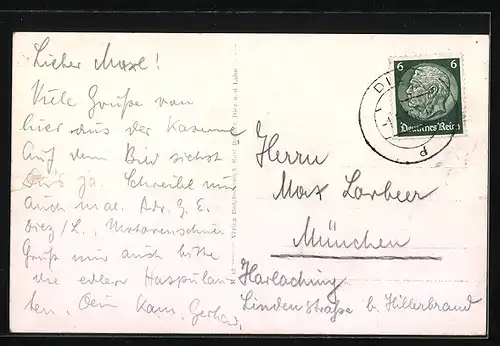 Lieber Maxl!
Viele Grüße von
hier aus der Kaserne
Auf dem Bild siehst
ja. Schreibe mir
auch mal. Adr. G. E.
Diez/L., Motorenschule
Grüß mir auch bitte
die edlen
Dein Kam. Gerhard.
6 6
Deutsches Reich
Herrn
Max Lorbeer
München
Harlaching
Lindenstraße b. Hillerbrand